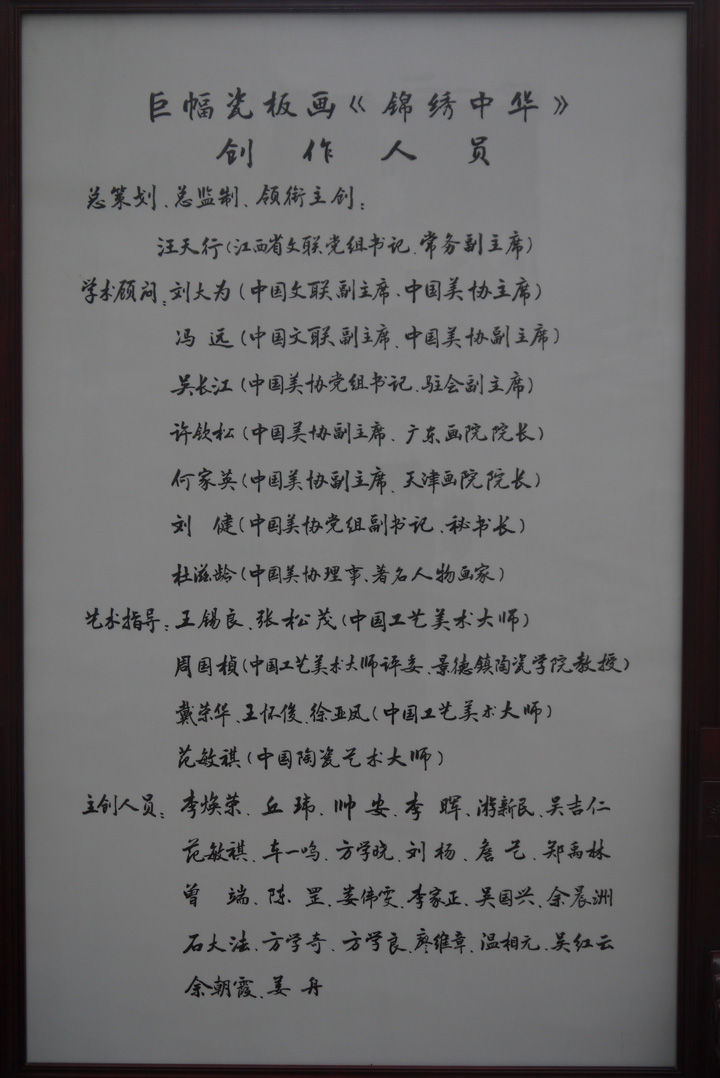 巨幅瓷板画《锦绣中华》
创作人员
总策划、总监制、领衔主创：
汪天行（江西省文联党组书记、常务副主席）
学术顾问：刘大为（中国文联副主席、中国美协主席）
冯远（中国文联副主席、中国美协副主席）
吴长江（中国美协党组书记、驻会副主席）
许钦松（中国美协副主席、广东画院院长）
何家英（中国美协副主席、天津画院院长）
刘健（中国美协党组副书记、秘书长）
杜滋龄（中国美协理事、著名人物画家）
艺术指导：王锡良、张松茂（中国工艺美术大师）
周国桢（中国工艺美术大师评委、景德镇陶瓷学院教授）
戴荣华、王怀俊、徐亚凤（中国工艺美术大师）
范敏祺（中国陶瓷艺术大师）
主创人员：李焕荣、丘玮、帅安、李晖、游新民、吴吉仁
范敏祺、车一鸣、方学晓、刘杨、詹艺、郑禹林
曾端、陈罡、娄伟雯、李家正、吴国兴、余晨洲
石大法、方学奇、方学良、廖维章、温相元、吴红云
余朝霞、姜丹